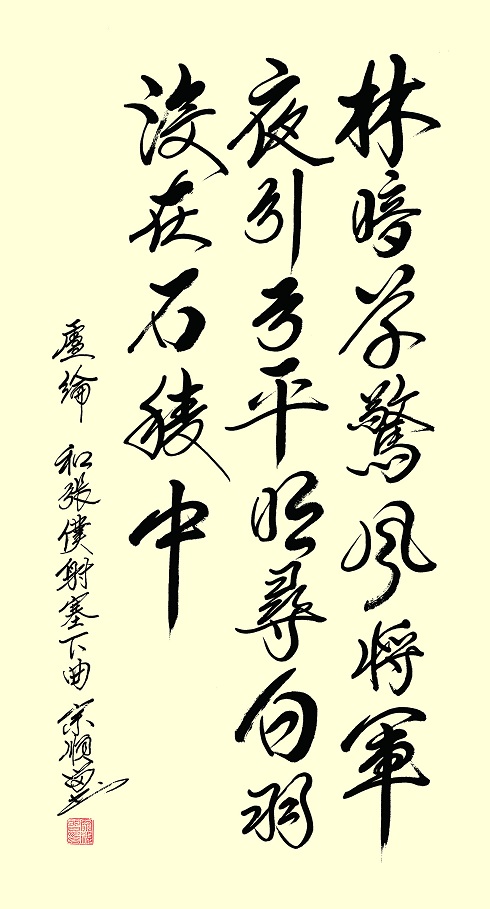 林暗草驚風將軍
夜引弓平明尋白羽
沒在石稜中
盧綸 和張僕射塞下曲 宗順書